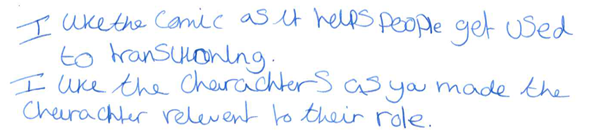 I like the comic as it helps people get used
to transitioning.
I like the charachters as you made the
charachter relevent to their role.